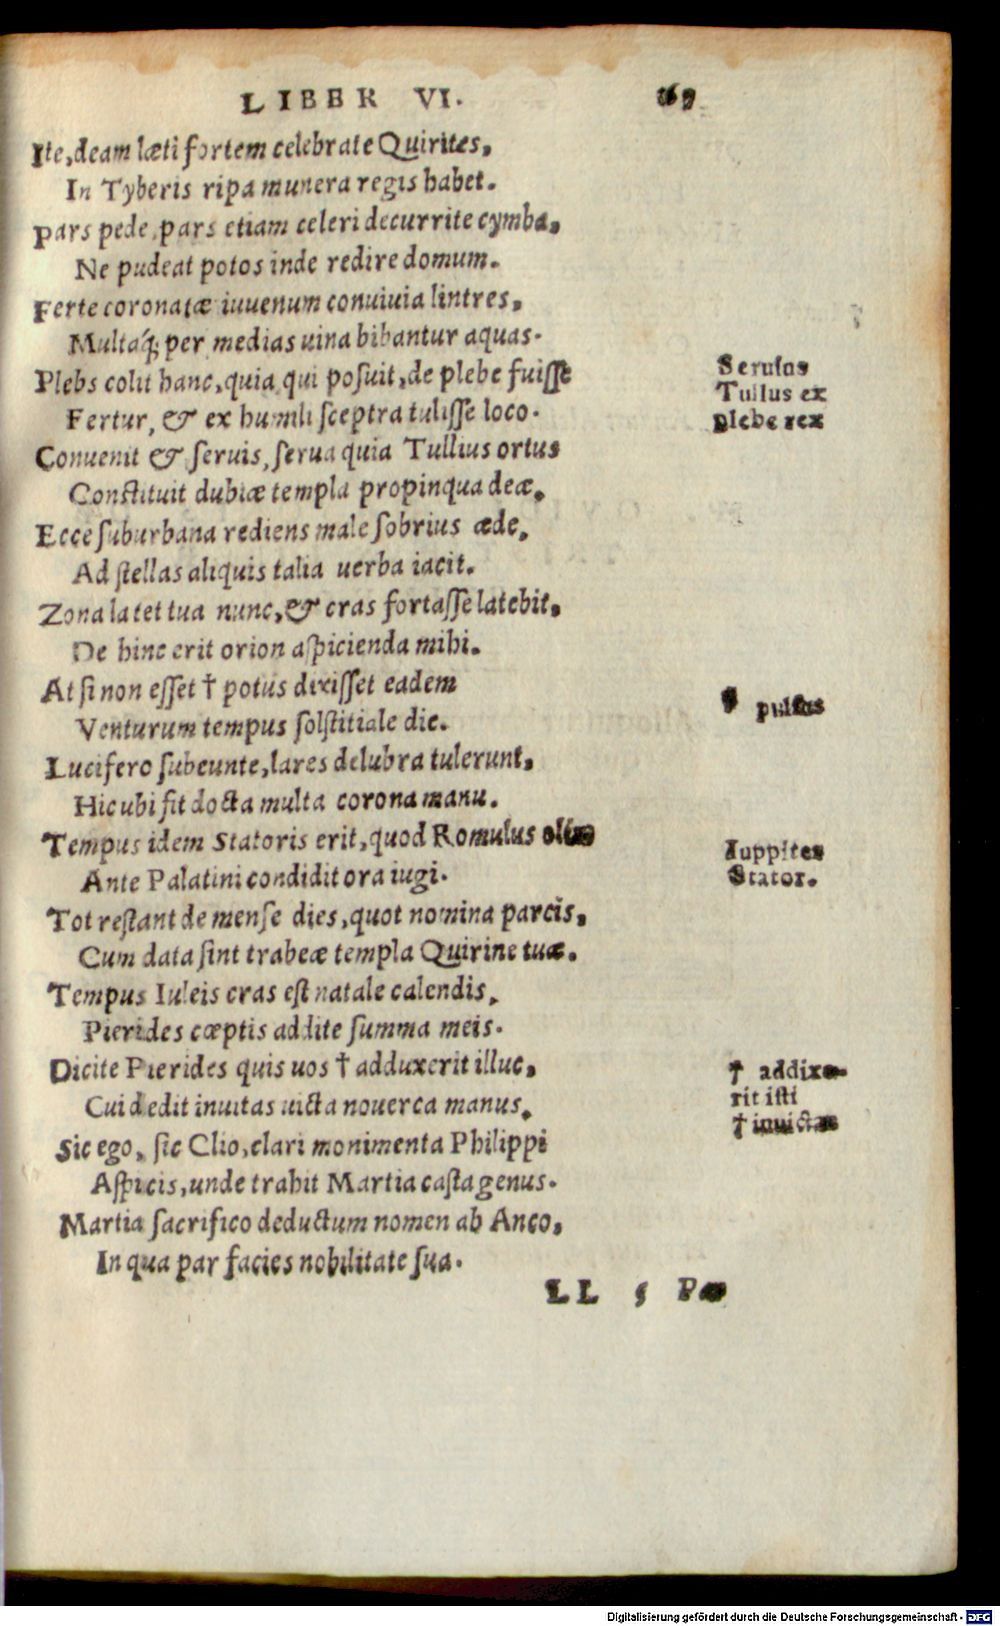 LIBER VI.
Ite, deam læti fortem celebrate Quirites,
In Tyberis ripa munera regis habet.
Pars pede, pars etiam celeri decurrite cymba,
Ne pudeat potos inde redire domum.
Ferte coronatæ iuuenum conuiuia lintres,
Multaq́; per medias uina bibantur aquas.
Plebs colit hanc, quia qui posuit, de plebe fuisse
Seruius
Tullus ex
plebe rex
Fertur, & ex humili sceptra tulisse loco.
Conuenit & seruis, serua quia Tullius ortus
Constituit dubiæ templa propinqua deæ,
Ecce suburbana rediens male sobrius æde,
Ad stellas aliquis talia uerba iacit.
Zona latet tua nunc, & cras fortasse latebit,
De hinc erit orion aspicienda mihi.
At si non esset † potus dixisset eadem
pulsus
Venturum tempus solstitiale die.
Lucifero subeunte, lares delubra tulerunt,
Hic ubi fit docta multa corona manu.
Tempus idem Statoris erit, quod Romulus olim
Iuppiter
Stator.
Ante Palatini condidit ora iugi.
Tot restant de mense dies, quot nomina parcis,
Cum data sint trabeæ templa Quirine tuæ.
Tempus Iuleis cras est natale calendis,
Pierides cœptis addite summa meis.
Dicite Pierides quis uos † adduxerit illuc,
† addixe-
rit isti
† inuictas
Cui dedit inuitas uicta nouerca manus,
Sic ego, sic Clio, clari monimenta Philippi
Aspicis, unde trahit Martia casta genus.
Martia sacrifico deductum nomen ab Anco,
In qua par facies nobilitate sua.
LL 5
Digitalisierung gefördert durch die Deutsche Forschungsgemeinschaft - DFG